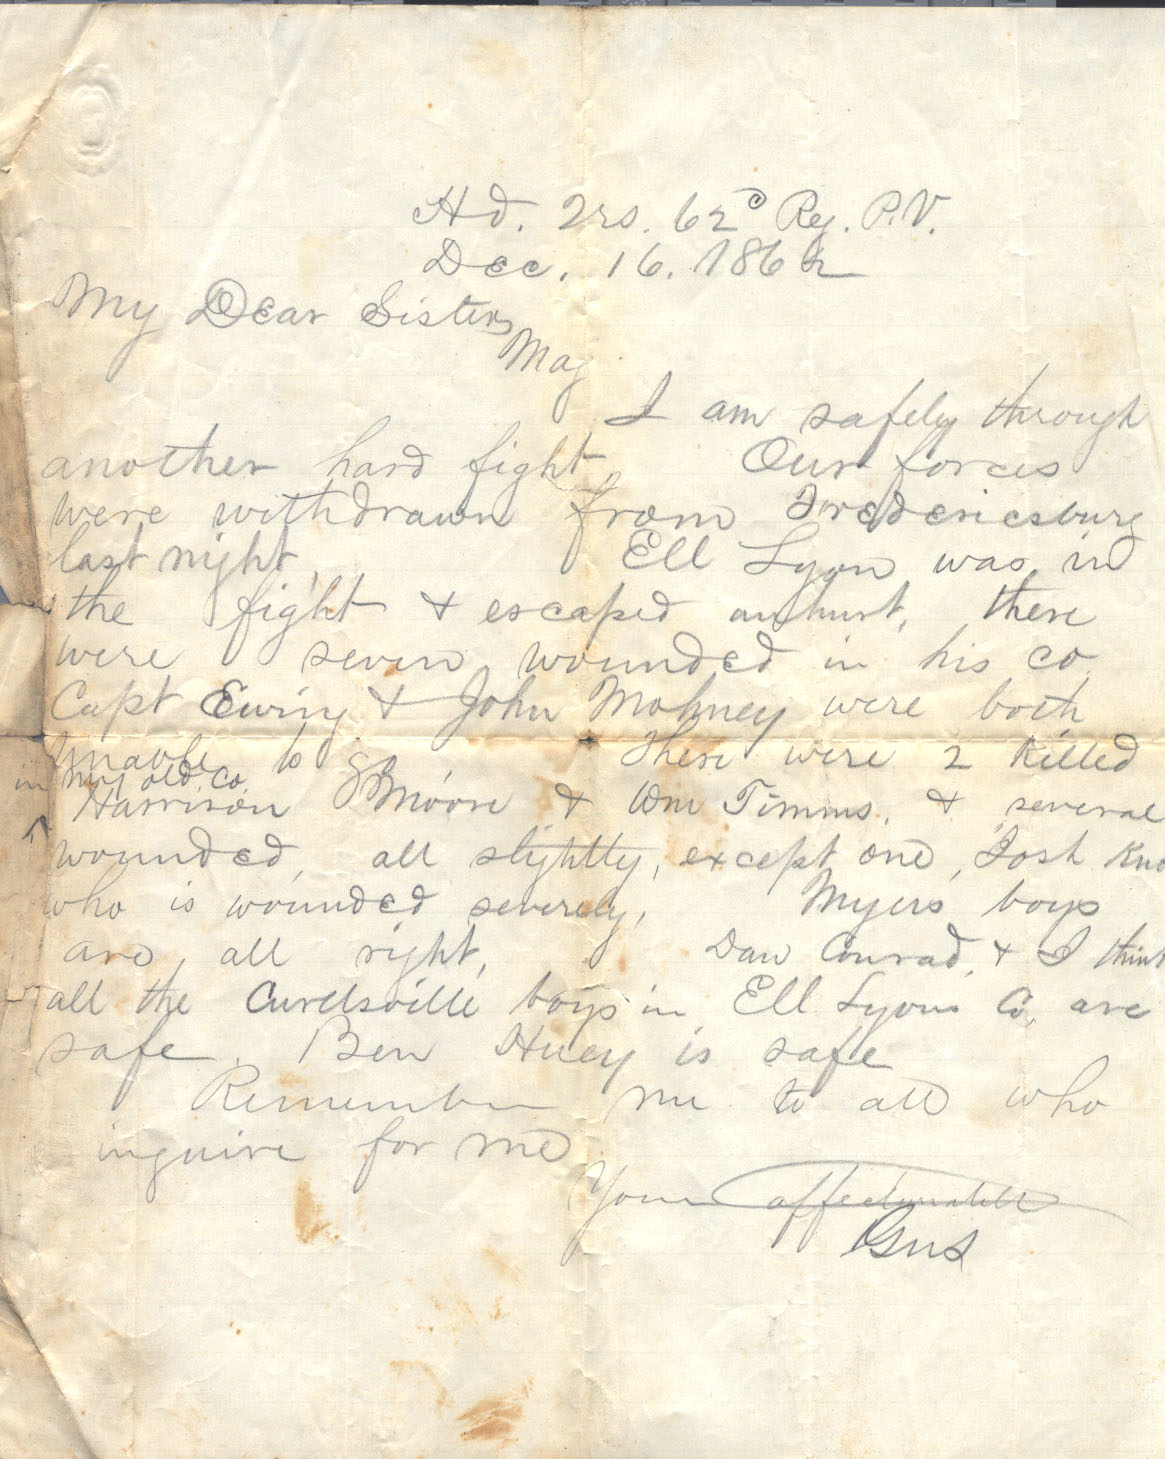 Hd. Qrs. 62d Reg. P.V.
Dec. 16. 1862
My Dear Sister,
Mag
I am safely through
another hard fight. Our forces
were withdrawn from Fredericsburg
last night. Ell Lyon was in
the fight & escaped unhurt, there
were seven wounded in his co.
Capt Ewing & John Mohney were both
unable to There were 2 Killed
in my old Co.
Harrison Moore & Wm Timms, & several
wounded, all slightly, except one, Josh
who is wounded severely, Myers boys
are all right, Dan Conrad, & I think
all the Curllsville boys in Ell Lyons Co. are
safe. Ben Huey is safe
Remember me to all who
inquire for me
Your affectionate
Gus